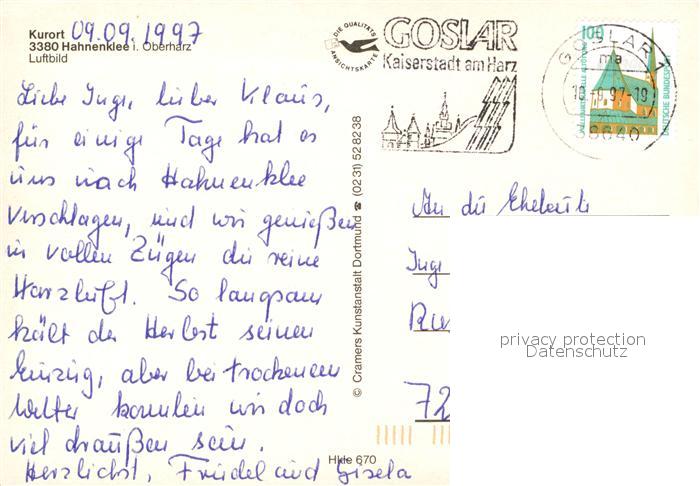 Kurort 09.09.1997
3380 Hahnenklee i. Oberharz
Luftbild
Liebe Inge, lieber Klaus,
für einige Tage hat es
uns nach Hahnenklee
verschlagen, und wir genießen
in vollen Zügen die reine
Harzluft. So langsam
hält der Herbst seinen
Einzug, aber bei trockenem
Wetter konnten wir doch
viel draußen sein.
Herzlichst, Friedel und Gisela
DIE QUALITÄTS
ANSICHTSKARTE
© Cramers Kunstanstalt Dortmund ☎ (0231) 528238
Hkle 670
GOSLAR
Kaiserstadt am Harz
GOSLAR 1
ma
-9.97-19
38640
100
DEUTSCHE BUNDESPOST
An die Eheleute
Inge
72
privacy protection
Datenschutz